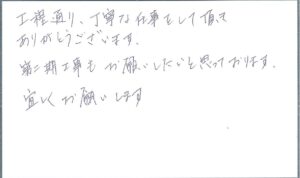 工程通り、丁寧な仕事をして頂き
ありがとうございます。
第二期工事も お願いしたいと思っております。
宜しくお願いします